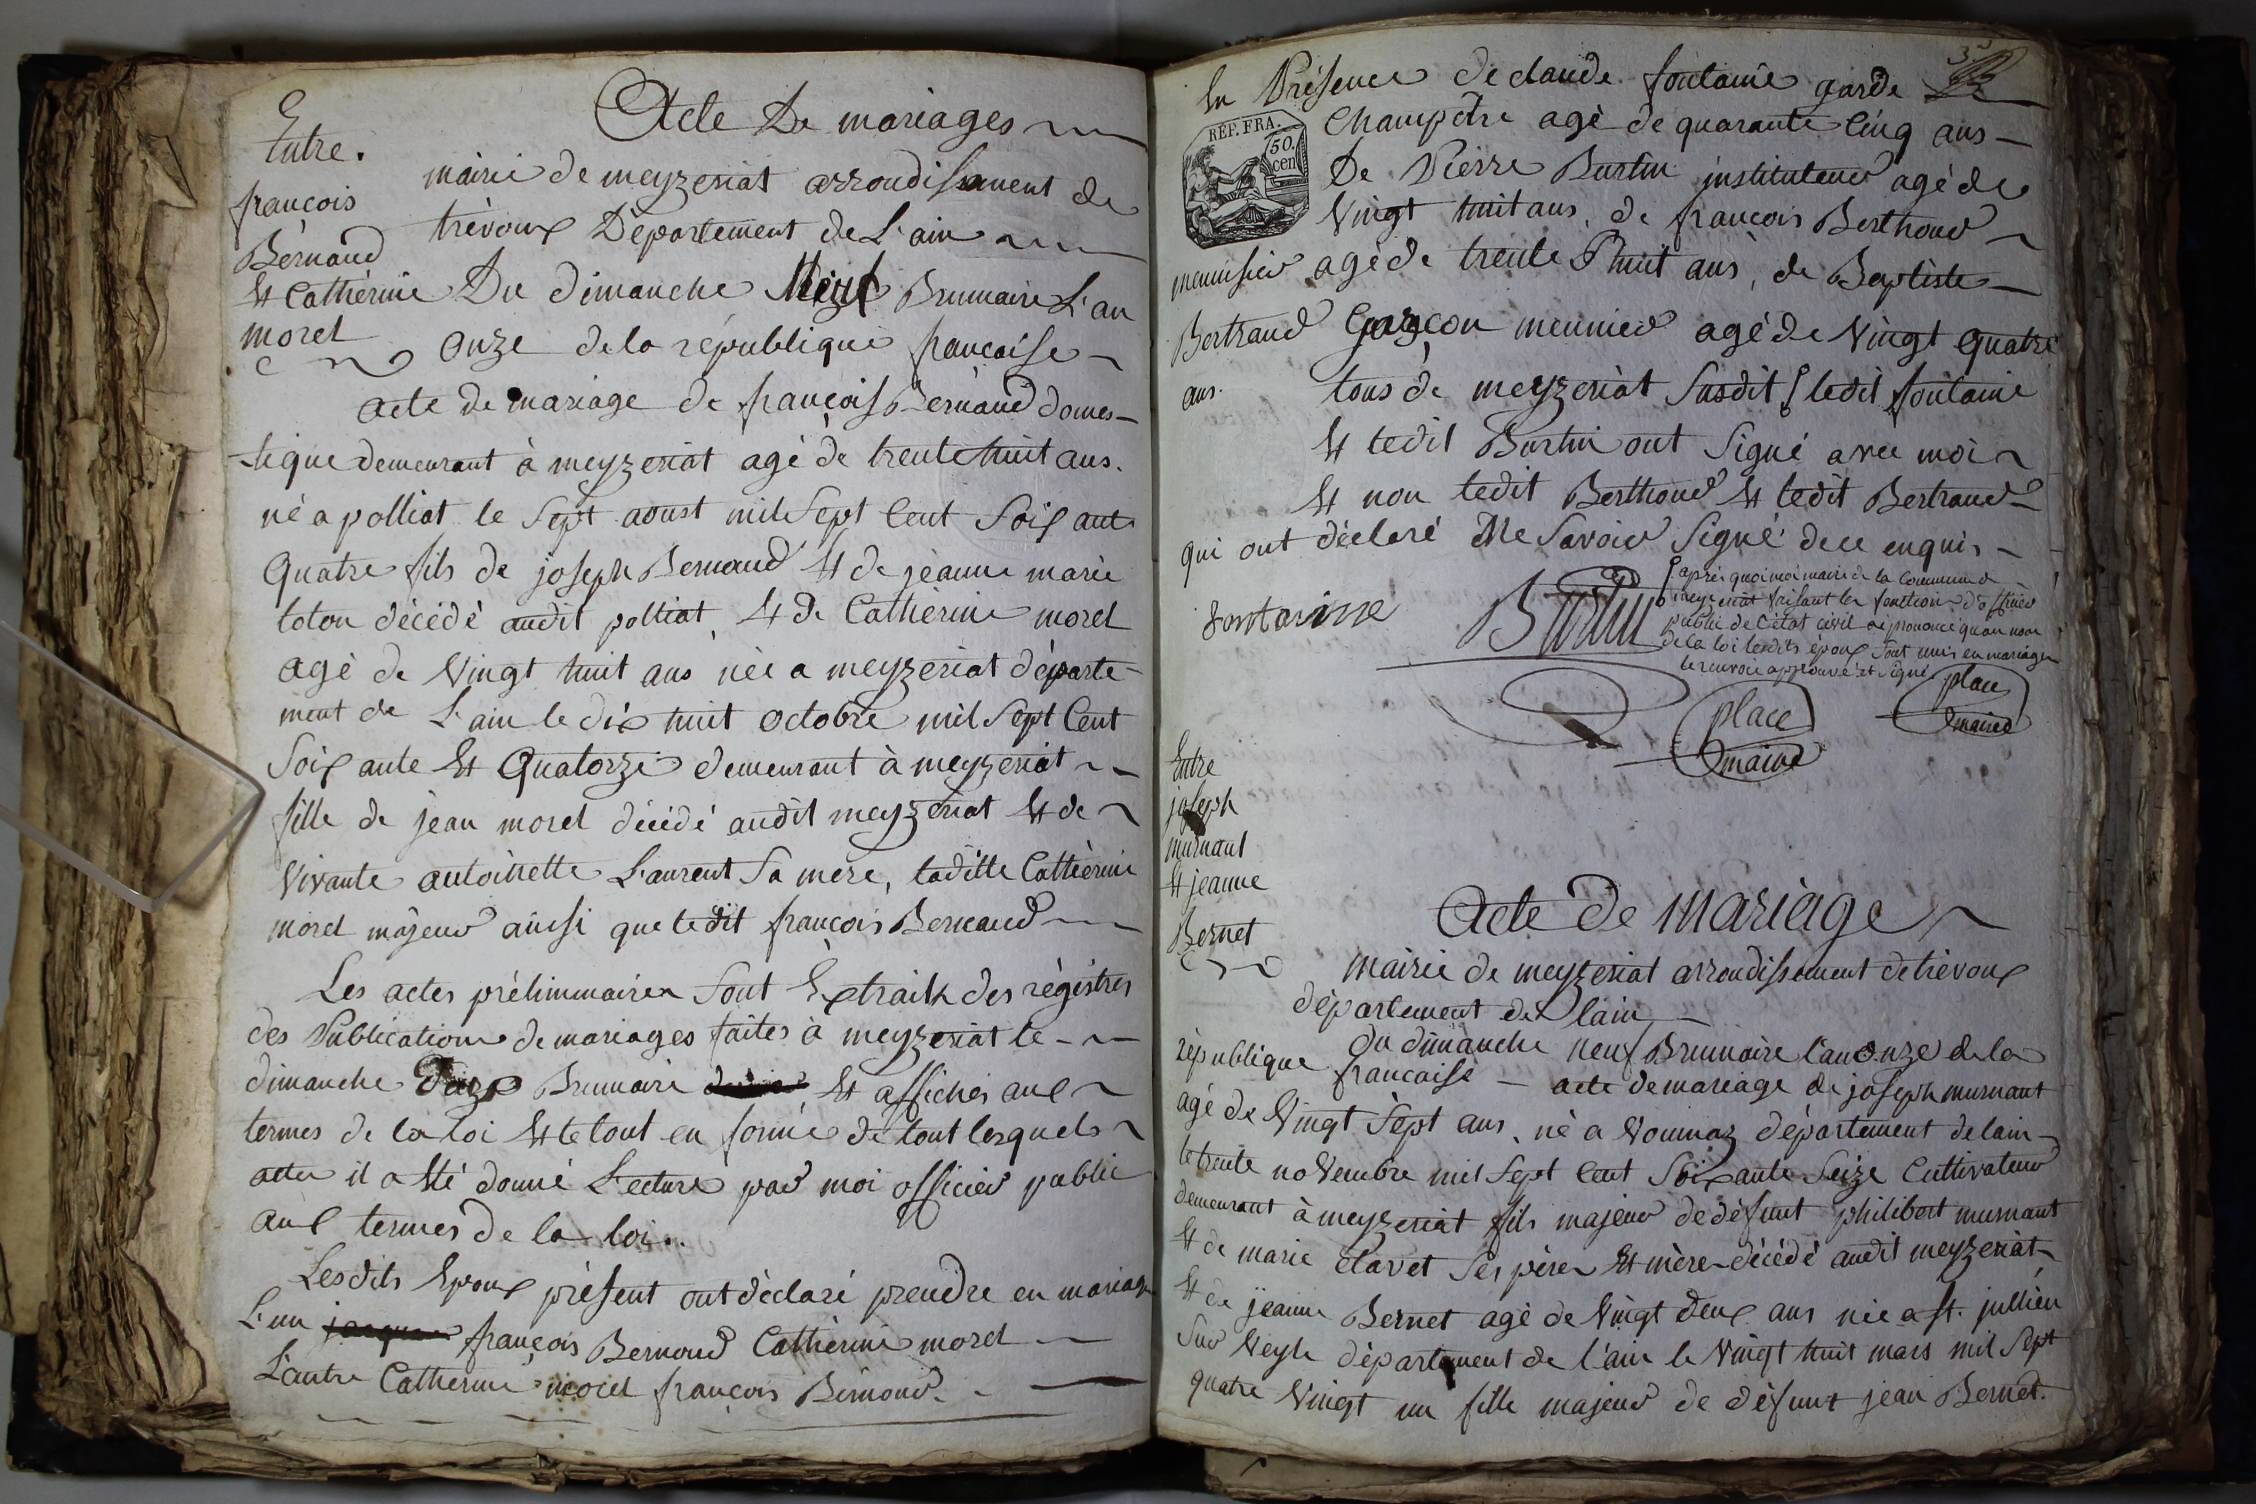 Acte De mariages
Entre
françois
Bernaud
Et Catherine
morel
mairie de meyzeriat arrondissement de
trévoux Département de L'ain
Du dimanche Neuf Brumaire L'an
onze de la république francaise
acte de mariage de françois Bernaud domes-
tique demeurant à meyzeriat agé de trente huit ans.
né a polliat le sept aoust mil sept cent soixante
Quatre fils de joseph Bernaud Et de jeanne marie
toton décédé audit polliat, Et de Catherine morel
agé de vingt huit ans née a meyzeriat départe-
ment de L'ain le dix huit octobre mil sept Cent
soixante Et Quatorze demeurant à meyzeriat
fille de jean morel décédé audit meyzeriat Et de
vivante antoinette Laurent sa mere, laditte Catherine
morel majeur ainsi que ledit françois Bernaud
Les actes préliminaires sont Extraits des régistres
des Publications de mariages faites à meyzeriat le
dimanche Brumaire Et affichés aux
termes de la loi Et le tout en forme de tout lesquels
actes il a Eté donné Lecture par moi officier public
aux termes de la loi..
Lesdits Epoux présent ont déclaré prendre en mariage
L'un françois Bernaud Catherine morel
L'autre Catherine morel françois Bernaud
En Présence de claude fontaine garde
REP. FRA.
50.
cen
Champêtre agé de quarante Cinq ans
De Pierre Burtin instituteur agé de
vingt huit ans, de françois Berthoud
menuisier agé de trente huit ans, de Baptiste
Bertrand Garçon meunier agé de vingt quatre
ans. tous de meyzeriat susdit ledit fontaine
Et ledit Burtin ont signé avec moi
Et non ledit Berthoud Et ledit Bertrand
qui ont déclaré Ne savoir signé de ce enquis
après quoi moi maire de la commune de
meyzeriat faisant les fonctions d'officier
public de l'état civil ai prononcé qu'au nom
de la loi lesdits époux sont unis en mariage
le renvoi approuvé et signé
fontainne
Burtin
place
maire
place
maire
Entre
joseph
murnant
Et jeanne
Bernet
Acte de mariage
mairie de meyzeriat arrondissement de trévoux
département de lain
du dimanche neuf Brumaire l'an onze de la
république francaise — acte de mariage de joseph murnant
agé de vingt sept ans, né a vonnaz département de lain
le trente novembre mil sept cent soixante seize cultivateur
demeurant à meyzeriat fils majeur de défunt philibert murnant
Et de marie clavet ses père Et mère décédé audit meyzeriat
Et de jeanne Bernet agé de vingt deux ans née a st. jullien
sur veyle département de l'ain le vingt huit mars mil sept
quatre vingt un fille majeur de défunt jean Bernet.